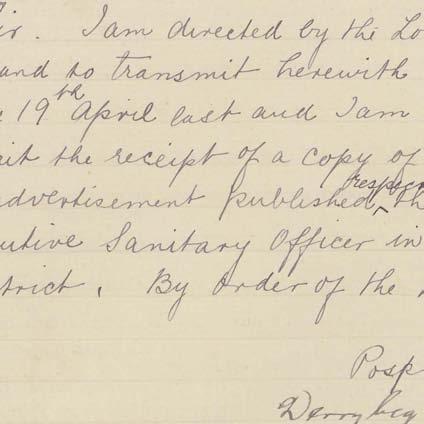 Sir. I am directed by the Lo
and to transmit herewith
19th April last and I am
ait the receipt of a copy of
respec
advertisement published ^ th
utive Sanitary Officer in
trict. By order of the